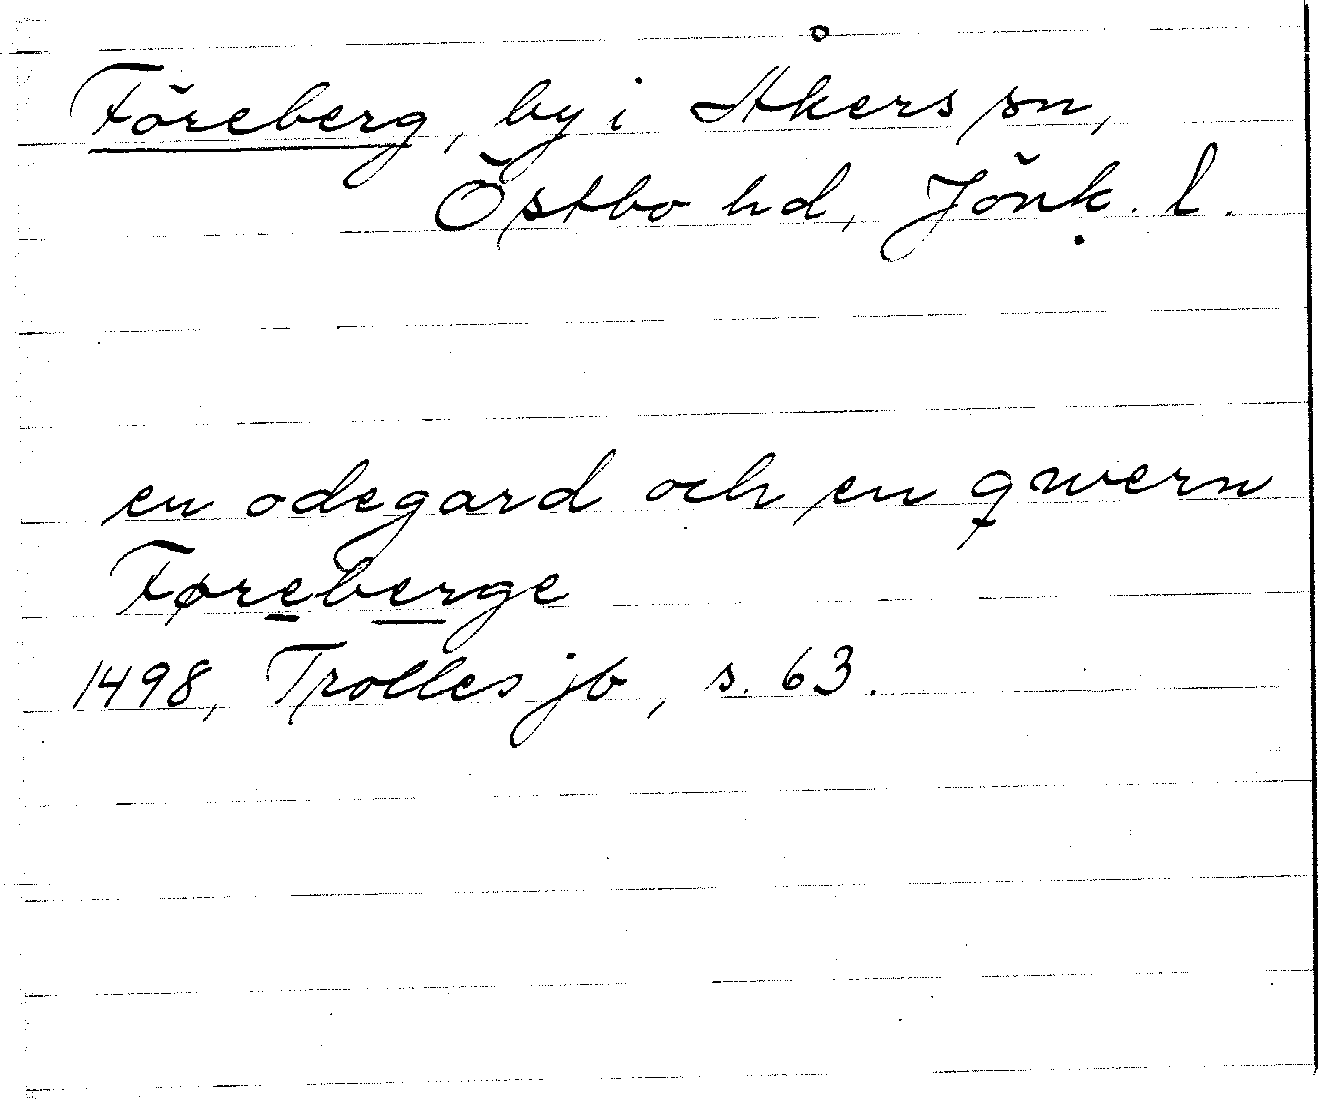 Föreberg, by i Åkers sn,
Östbo hd, Jönk. l.
en odegard och en qwern
Føreberge
1498, Trolles jb, s. 63.